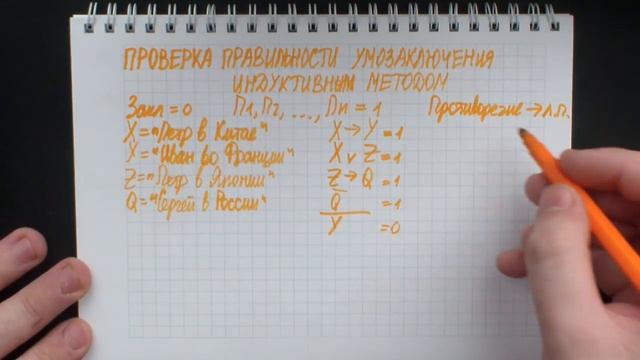 ПРОВЕРКА ПРАВИЛЬНОСТИ УМОЗАКЛЮЧЕНИЯ
ИНДУКТИВНЫМ МЕТОДОМ
Закл = 0 П1, П2, ..., Пn = 1 Противоречие → Л.П.
X = "Петр в Китае" X → Y = 1
Y = "Иван во Франции" X ∨ Z = 1
Z = "Петр в Японии" Z → Q = 1
Q = "Сергей в России" Q̅ = 1
Y = 0